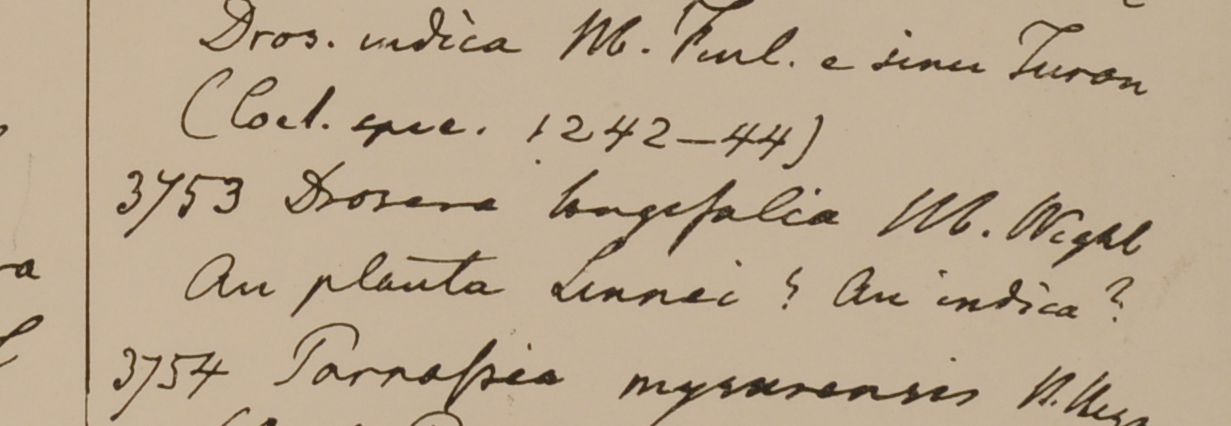 Dros. indica M. Finl. e sinu Turon
(Coel. spec. 1242–44)
3753 Drosera longifolia M. Wight
An planta Linnei ? An indica ?
3754 Parnassia mysorensis H. Heyn